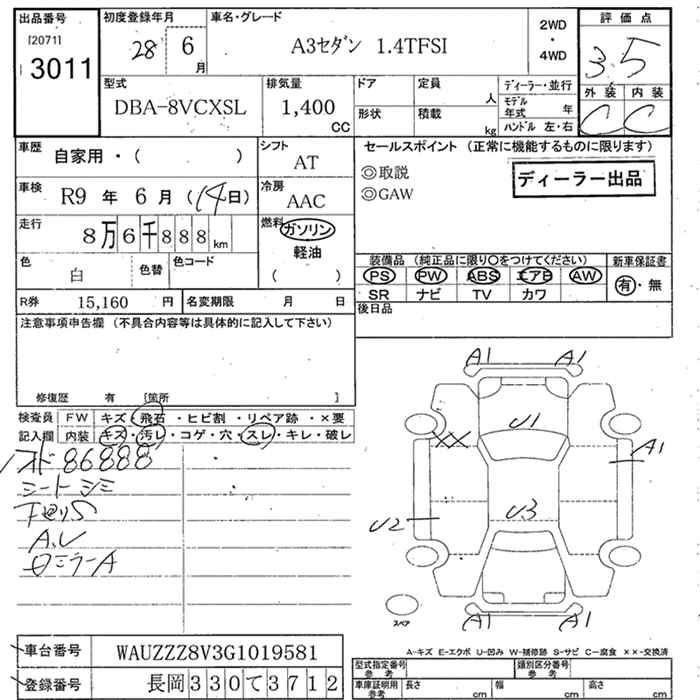 出品番号 初度登録年月 車名・グレード 2WD 評価点
[2071]
3011 28 6月 A3セダン 1.4TFSI ・ 4WD 3.5
外装 内装
C C
型式 排気量 ドア 定員 人 ディーラー・並行
DBA-8VCXSL 1,400 CC 形状 積載 kg モデル年式 年
ハンドル 左・右
車歴 自家用・( ) シフト AT セールスポイント (正常に機能するものに限ります)
◎取説 ディーラー出品
車検 R9 年 6 月 (14日) 冷房 AAC ◎GAW
走行 8万6千888km 燃料 ガソリン
軽油
( )
色 白 色替 色コード 装備品 (純正品に限り〇をつけてください) 新車保証書
PS PW ABS エアB AW 有・無
R券 15,160 円 名変期限 月 日 SR ナビ TV カワ
注意事項申告欄 (不具合内容等は具体的に記入して下さい) 後日品
修復歴 有 [箇所 ]
検査員 FW キズ・飛石・ヒビ割・リペア跡・×要
記入欄 内装 キズ・汚レ・コゲ・穴・スレ・キレ・破レ
86888
シート シミ
下廻りS
A.U
ミラーA
A1 A1
U1
XX A1
U2 U3
A1 A1
スペア
A-キズ E-エクボ U-凹み W-補修跡 S-サビ C-腐食 ××-交換済
車台番号 WAUZZZ8V3G1019581 型式指定番号 参考 類別区分番号 参考
登録番号 長岡330て3712 車庫証明用 参考 長さ cm 幅 cm 高さ cm